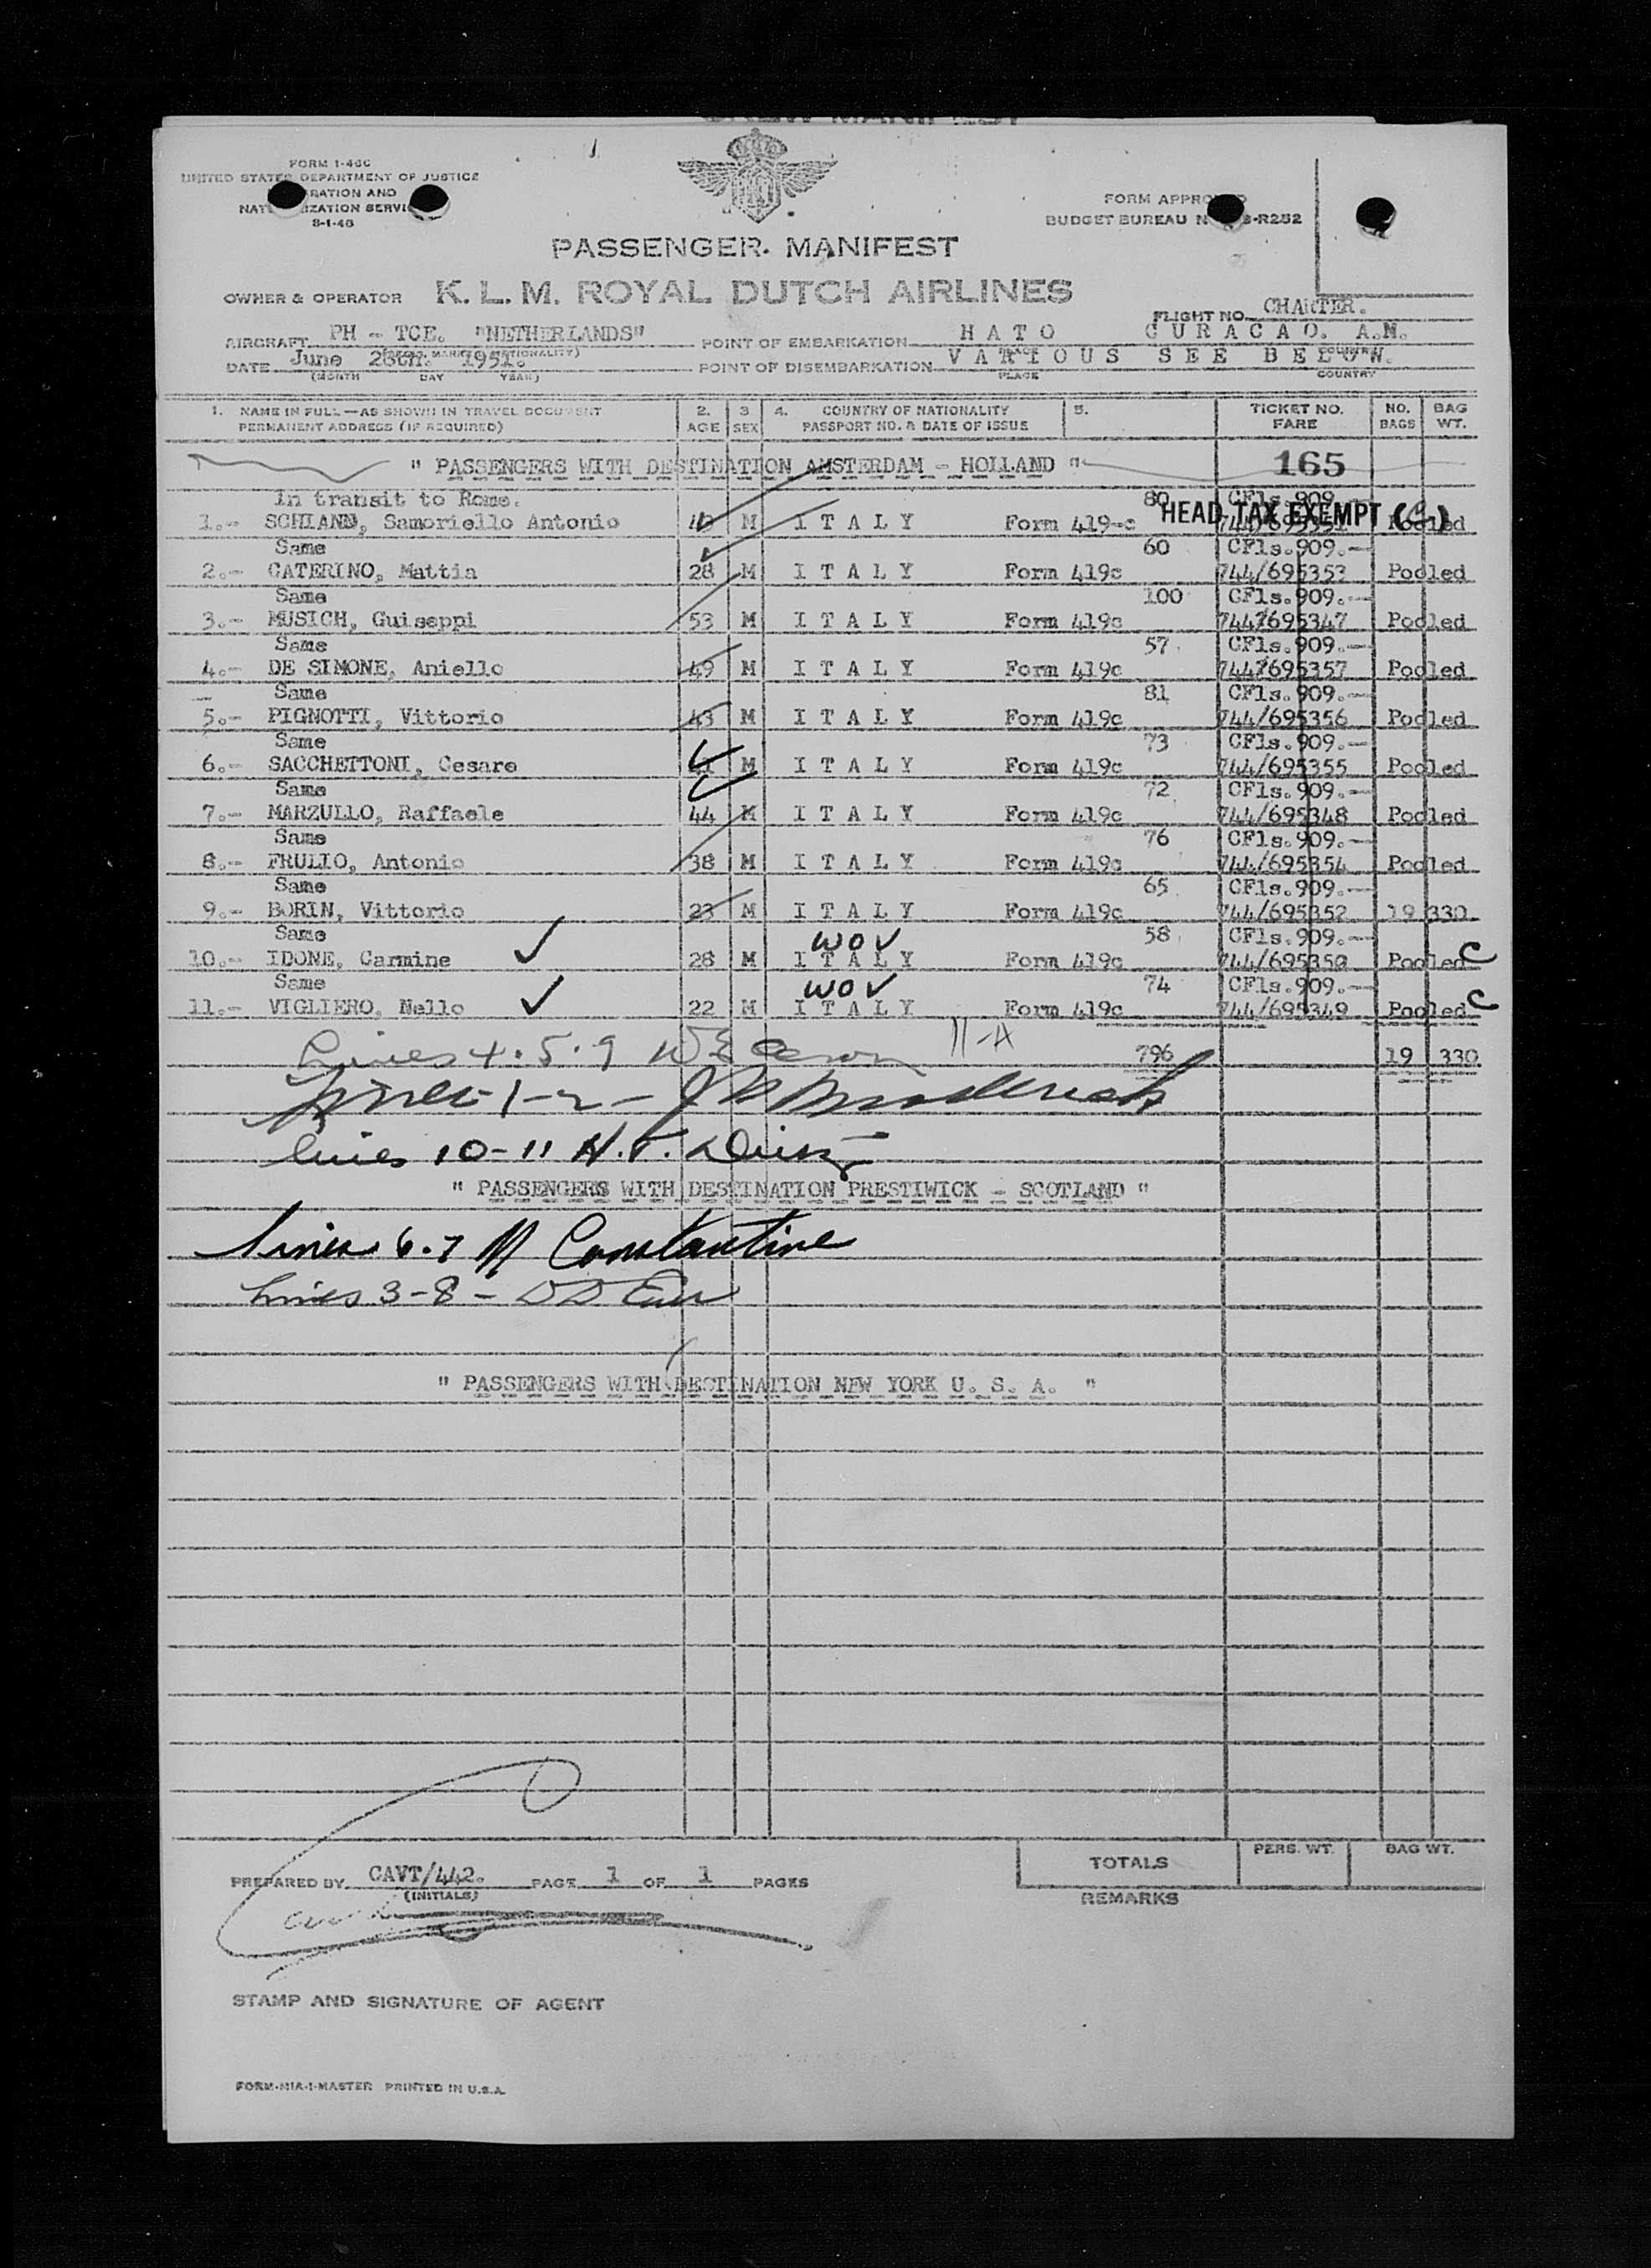 FORM I-466
UNITED STATES DEPARTMENT OF JUSTICE
RATION AND
NAT IZATION SERVI
8-1-46
FORM APPRO
BUDGET BUREAU N -R252
PASSENGER MANIFEST
OWNER & OPERATOR K. L. M. ROYAL DUTCH AIRLINES
FLIGHT NO. CHARTER.
AIRCRAFT PH - TCE. "NETHERLANDS" POINT OF EMBARKATION HATO CURACAO. A.N.
DATE June 28th. 1951. POINT OF DISEMBARKATION VARIOUS SEE BELOW.
(MONTH DAY YEAR) PLACE COUNTRY
1. NAME IN FULL—AS SHOWN IN TRAVEL DOCUMENT 2. 3. 4. COUNTRY OF NATIONALITY 5. TICKET NO. NO. BAG
PERMANENT ADDRESS (IF REQUIRED) AGE SEX PASSPORT NO. & DATE OF ISSUE FARE BAGS WT.
" PASSENGERS WITH DESTINATION AMSTERDAM - HOLLAND " 165
In transit to Rome. 80 CFls.909.
HEAD TAX EXEMPT (C)
1.- SCHIANO, Samoriello Antonio M ITALY Form 419-c Pooled
Same 60 CFls.909.—
2.- CATERINO, Mattia 28 M ITALY Form 419c 744/695353 Pooled
Same 100 CFls.909.—
3.- MUSICH, Guiseppi 53 M ITALY Form 419c 744/695347 Pooled
Same 57 CFls.909.—
4.- DE SIMONE, Aniello 49 M ITALY Form 419c 744/695357 Pooled
Same 81 CFls.909.—
5.- PIGNOTTI, Vittorio 43 M ITALY Form 419c 744/695356 Pooled
Same 73 CFls.909.—
6.- SACCHETTONI, Cesare 41 M ITALY Form 419c 744/695355 Pooled
Same 72 CFls.909.—
7.- MARZULLO, Raffaele 44 M ITALY Form 419c 744/695348 Pooled
Same 76 CFls.909.—
8.- FRULIO, Antonio 38 M ITALY Form 419c 744/695354 Pooled
Same 65 CFls.909.—
9.- BORIN, Vittorio 23 M ITALY Form 419c 744/695352 19 330
Same WOV 58 CFls.909.—
10.- IDONE, Carmine 28 M ITALY Form 419c 744/695350 Pooled C
Same WOV 74 CFls.909.—
11.- VIGLIERO, Nello 22 M ITALY Form 419c 744/695349 Pooled C
Lines 4.5.9 11-A 796 19 330
Lines 1-2-
lines 10-11
" PASSENGERS WITH DESTINATION PRESTIWICK - SCOTLAND "
Lines 6.7 M Constantine
Lines 3-8 -
" PASSENGERS WITH DESTINATION NEW YORK U. S. A. "
TOTALS PERS. WT. BAG WT.
PREPARED BY CAVT/442. PAGE 1 OF 1 PAGES
(INITIALS)
REMARKS
STAMP AND SIGNATURE OF AGENT
FORM-MIA-1-MASTER PRINTED IN U.S.A.